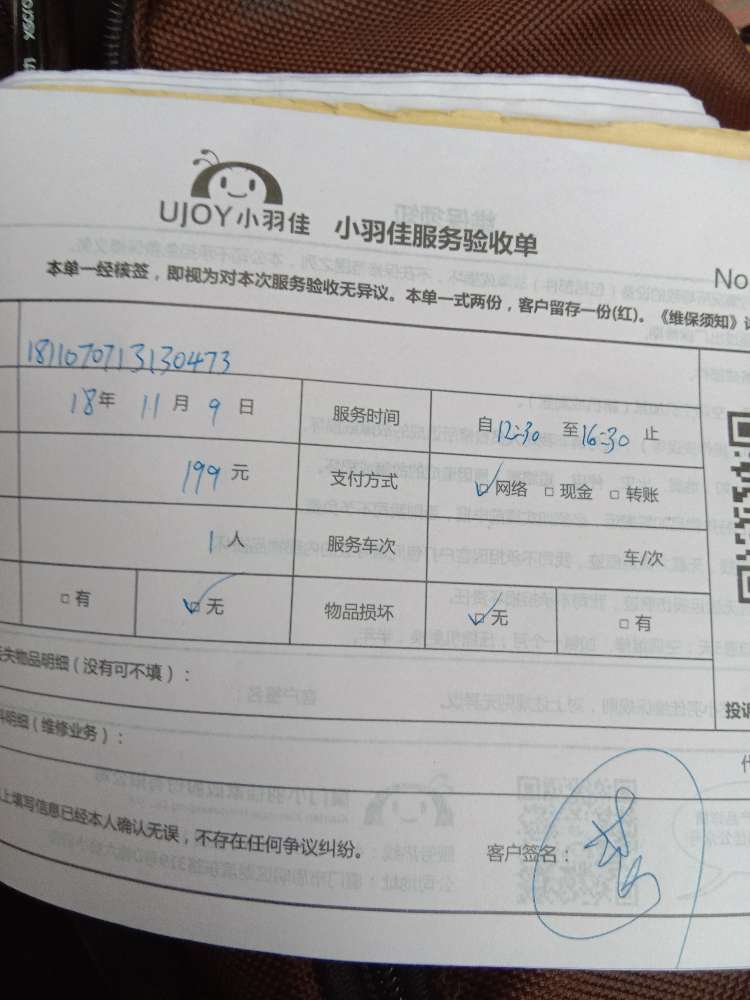 UJOY小羽佳 小羽佳服务验收单
No
本单一经核签，即视为对本次服务验收无异议。本单一式两份，客户留存一份(红)。《维保须知》
1811070713130473
18年 11月 9日 服务时间 自12:30 至16:30 止
199元 支付方式 网络 现金 转账
1人 服务车次 车/次
有 无 物品损坏 无 有
失物品明细（没有可不填）：
投诉
明细（维修业务）：
上填写信息已经本人确认无误，不存在任何争议纠纷。 客户签名：